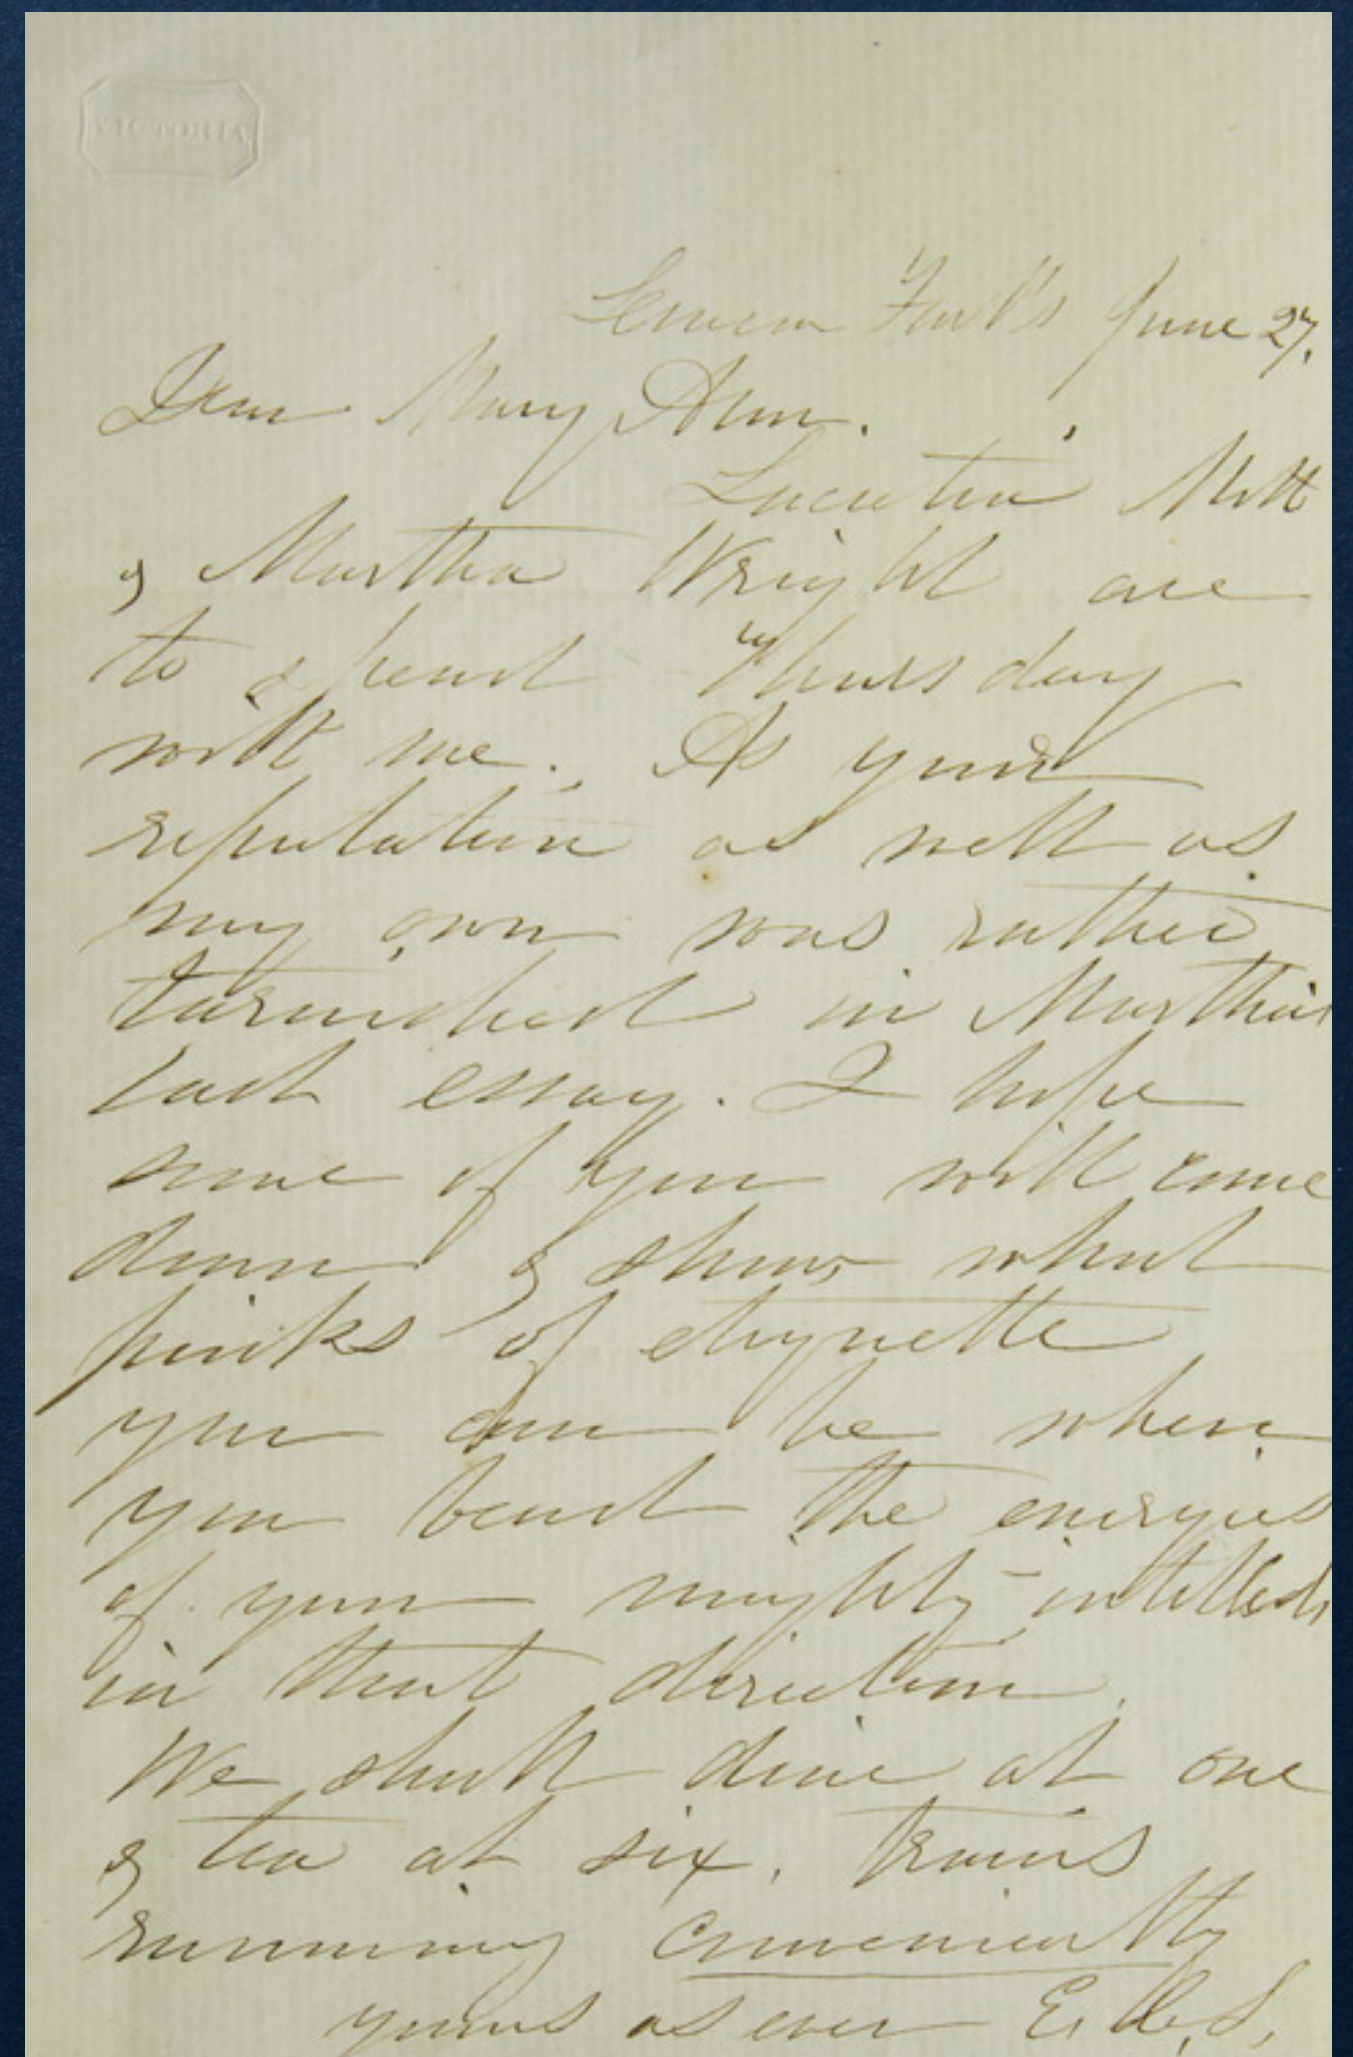 VICTORIA
Seneca Falls June 27.
Dear Mary Ann.
Lucretia Mott
& Martha Wright are
to spend Thursday
with me. As your
reputation as well as
my own was rather
tarnished in Martha's
last essay. I hope
some of you will come
down & show what
pinks of etiquette
you can be when
you bend the energies
of your mighty intellects
in that direction.
We shall dine at one
& tea at six. Trains
running conveniently
yours as ever E. C. S.